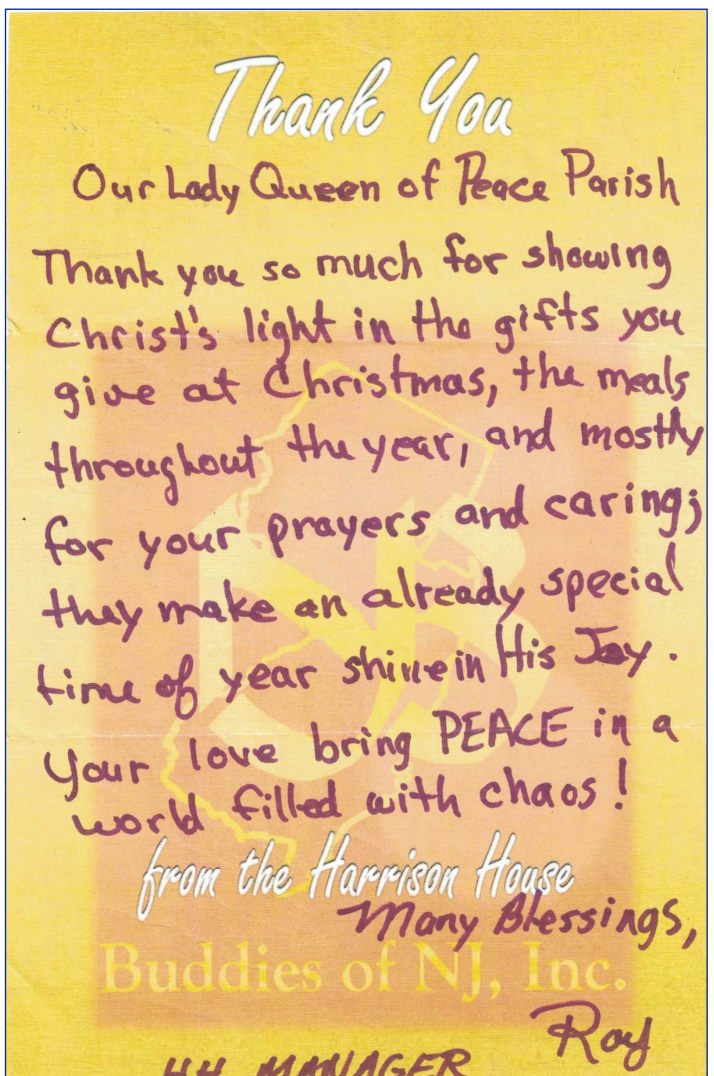 Thank You
Our Lady Queen of Peace Parish
Thank you so much for showing
Christ's light in the gifts you
give at Christmas, the meals
throughout the year, and mostly
for your prayers and caring;
they make an already special
time of year shine in His Joy.
Your love bring PEACE in a
world filled with chaos!
from the Harrison House
Many Blessings,
Buddies of NJ, Inc.
Roy
HH MANAGER